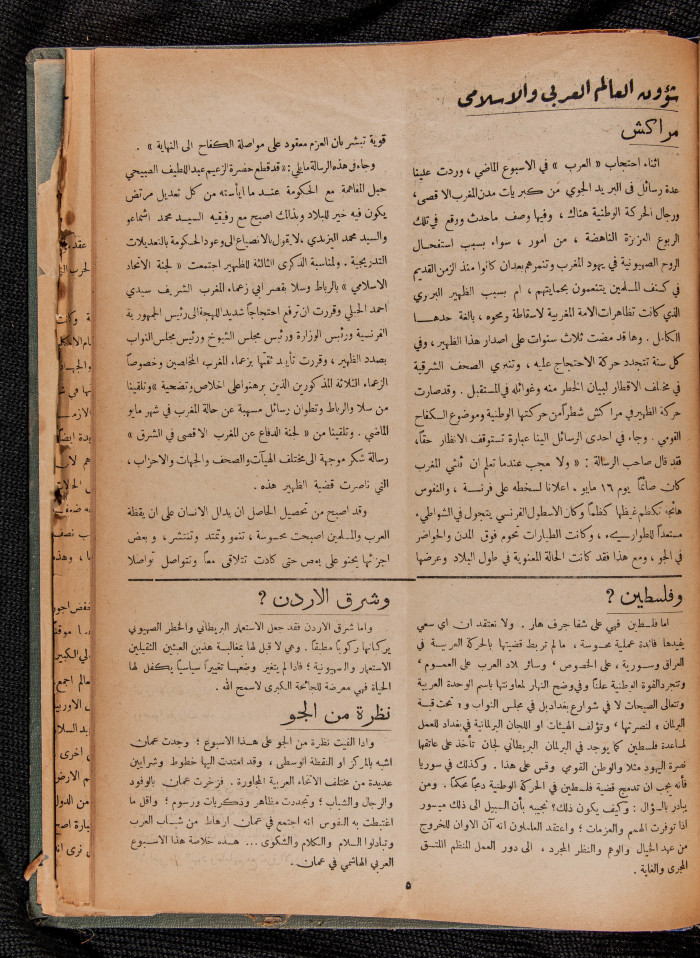 شؤون العالم العربي والاسلامي
مراكش
اثناء احتجاب « العرب » في الاسبوع الماضي ، وردت علينا
عدة رسائل في البريد الجوي من كبريات مدن المغرب الاقصى ،
ورجال الحركة الوطنية هناك ، وفيها وصف ماحدث ووقع في تلك
الربوع العزيزة الناهضة ، من امور ، سواء بسبب استفحال
الروح الصهيونية في يهود المغرب وتنمرهم بعدان كانوا منذ الزمن القديم
في كنف المسلمين يتنعمون بحمايتهم ، ام بسبب الظهير البربري
الذي كانت تظاهرات الامة المغربية لاسقاطه ومحوه ، بالغة حدها
الكامل . وها قد مضت ثلاث سنوات على اصدار هذا الظهير ، وفي
كل سنة تتجدد حركة الاحتجاج عليه ، وتنبري الصحف الشرقية
في مختلف الاقطار لبيان الخطر منه وغوائله في المستقبل . وقد صارت
حركة الظهير في مراكش شطراً من حركتها الوطنية وموضوع الكفاح
القومي . وجاء في احدى الرسائل الينا عبارة تستوقف الانظار حقاً،
فقد قال صاحب الرسالة : « ولا عجب عندما تعلم ان ثلثي المغرب
كان صائماً يوم ١٦ مايو . اعلانا لسخطه على فرنسة ، والنفوس
هائجة تكظم غيظها كظماً وكان الاسطول الفرنسي يتجول في الشواطيء
مستعداً للطواريء ، وكانت الطيارات تحوم فوق المدن والحواضر
في الجو ، ومع هذا فقد كانت الحالة المعنوية في طول البلاد وعرضها
وفلسطين ؟
اما فلسطين فهي على شفا جرف هار . ولا نعتقد ان اي سعي
يفيدها فائدة عملية محسوسة ، مالم تربط قضيتها بالحركة العربية في
العراق وسورية ، على الخصوص ، وسائر بلاد العرب على العموم ،
وتتجرد القوة الوطنية علناً وفي وضح النهار لمعاونتها باسم الوحدة العربية
وتتعالى الصيحات لا في شوارع بغداد بل في مجلس النواب و « تحت قبة
البرلمان » لنصرتها ، وتؤلف الهيئات او اللجان البرلمانية في بغداد للعمل
لمساعدة فلسطين كما يوجد في البرلمان البريطاني لجان تأخذ على عاتقها
نصرة اليهود مثلا والوطن القومي وقس على هذا . وكذلك في سوريا
فأنه يجب ان تدمج قضية فلسطين في الحركة الوطنية دمجاً محكماً . ومن
يبادر بالسؤال : وكيف يكون ذلك؟ نجيبه بأن السبيل الى ذلك ميسور
اذا توفرت الهمم والعزمات ؛ واعتقد العاملون انه آن الاوان للخروج
من عهد الخيال والوهم والنظر المجرد ، الى دور العمل المنظم المتسق
المجرى والغاية .
قوية تبشر بان العزم معقود على مواصلة الكفاح الى النهاية » .
وجاء في هذه الرسالة مايلي : « قد قطع حضرة الزعيم عبد اللطيف الصبيحي
حبل المفاهمة مع الحكومة عندما ايأسته من كل تعديل مرتض
يكون فيه خير للبلاد وبذلك اصبح مع رفيقيه السيد محمد اشماعو
والسيد محمد اليزيدي ، لايقول بالانصياع الى وعود الحكومة بالتعديلات
التدريجية . ولمناسبة الذكرى الثالثة للظهير اجتمعت « لجنة الاتحاد
الاسلامي » بالرباط وسلا بقصر ابي زعماء المغرب الشريف سيدي
احمد الجبلي وقررت ان ترفع احتجاجاً شديد اللهجة الى رئيس الجمهورية
الفرنسية ورئيس الوزارة ورئيس مجلس الشيوخ ورئيس مجلس النواب
بصدد الظهير ، وقررت تأييد ثقتها بزعماء المغرب المخلصين وخصوصاً
الزعماء الثلاثة المذكورين الذين برهنوا على اخلاص وتضحية » وتلقينا
من سلا والرباط وتطوان رسائل مسهبة عن حالة المغرب في شهر مايو
الماضي . وتلقينا من « لجنة الدفاع عن المغرب الاقصى في الشرق »
رسالة شكر موجهة الى مختلف الهيآت والصحف والجهات والاحزاب ،
التي ناصرت قضية الظهير هذه .
وقد اصبح من تحصيل الحاصل ان يدلل الانسان على ان يقظة
العرب والمسلمين اصبحت محسوسة ، تنمو وتمتد وتنتشر ، وبعض
اجزائها يحنو على بعض حتى كادت تتلاقى معاً وتتواصل تواصلا
وشرق الاردن ؟
واما شرق الاردن فقد جعل الاستعمار البريطاني والخطر الصهيوني
يركبانها ركوباً مطبقاً . وهي لا قبل لها بمغالبة هذين العبئين الثقيلين
الاستعمار والصهيونية ؛ فاذا لم يتغير وضعها تغييراً سياسياً يكفل لها
الحياة فهي معرضة للجائحة الكبرى لاسمح الله .
نظرة من الجو
واذا القيت نظرة من الجو على هذا الاسبوع ؛ وجدت عمان
اشبه بالمركز او النقطة الوسطى ، وقد امتدت اليها خطوط وشرايين
عديدة من مختلف الانحاء العربية المجاورة . فزخرت عمان بالوفود
والرجال والشباب ؛ وتجددت مظاهر وذكريات ورسوم ؛ واقل ما
اغتبطت به النفوس انه اجتمع في عمان ارهاط من شباب العرب
وتبادلوا السلام والكلام والشكوى ... هذه خلاصة هذا الاسبوع
العربي الهاشمي في عمان .
٥